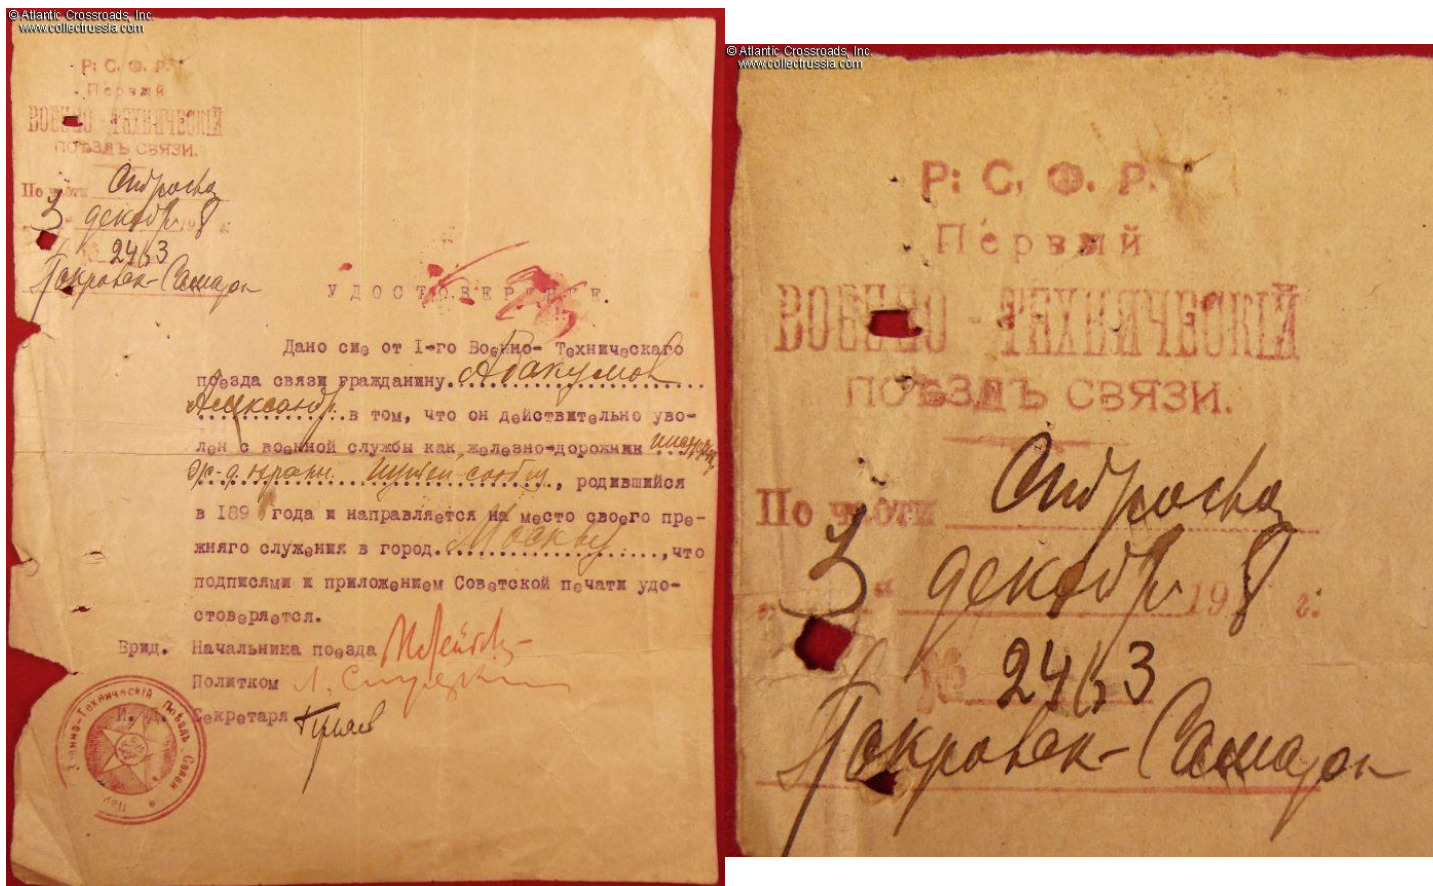 © Atlantic Crossroads, Inc.
www.collectrussia.com
Р. С. Ф. Р.
Первый
ВОЕННО - ТЕХНИЧЕСКІЙ
ПОѢЗДЪ СВЯЗИ.
По части
3 декабр 1918 г.
№ 2463
Покровск - Самара
УДОСТОВЕРЕНИЕ.
Дано сие от I-го Военно- Техническаго
поезда связи гражданину Абакумов
Александр в том, что он действительно уво-
лен с военной службы как железно-дорожник
охраны путей сообщ, родившийся
в 189 года и направляется на место своего пре-
жняго служения в город Москву, что
подписями и приложением Советской печати удо-
стоверяется.
Врид. Начальника поезда
Политком
И. д. Секретаря
Военно-Техническій Поѣздъ Связи
© Atlantic Crossroads, Inc.
www.collectrussia.com
Р. С. Ф. Р.
Первый
ВОЕННО - ТЕХНИЧЕСКІЙ
ПОѢЗДЪ СВЯЗИ.
По части
„3“ декабр 1918 г.
№ 2463
Покровск - Самара